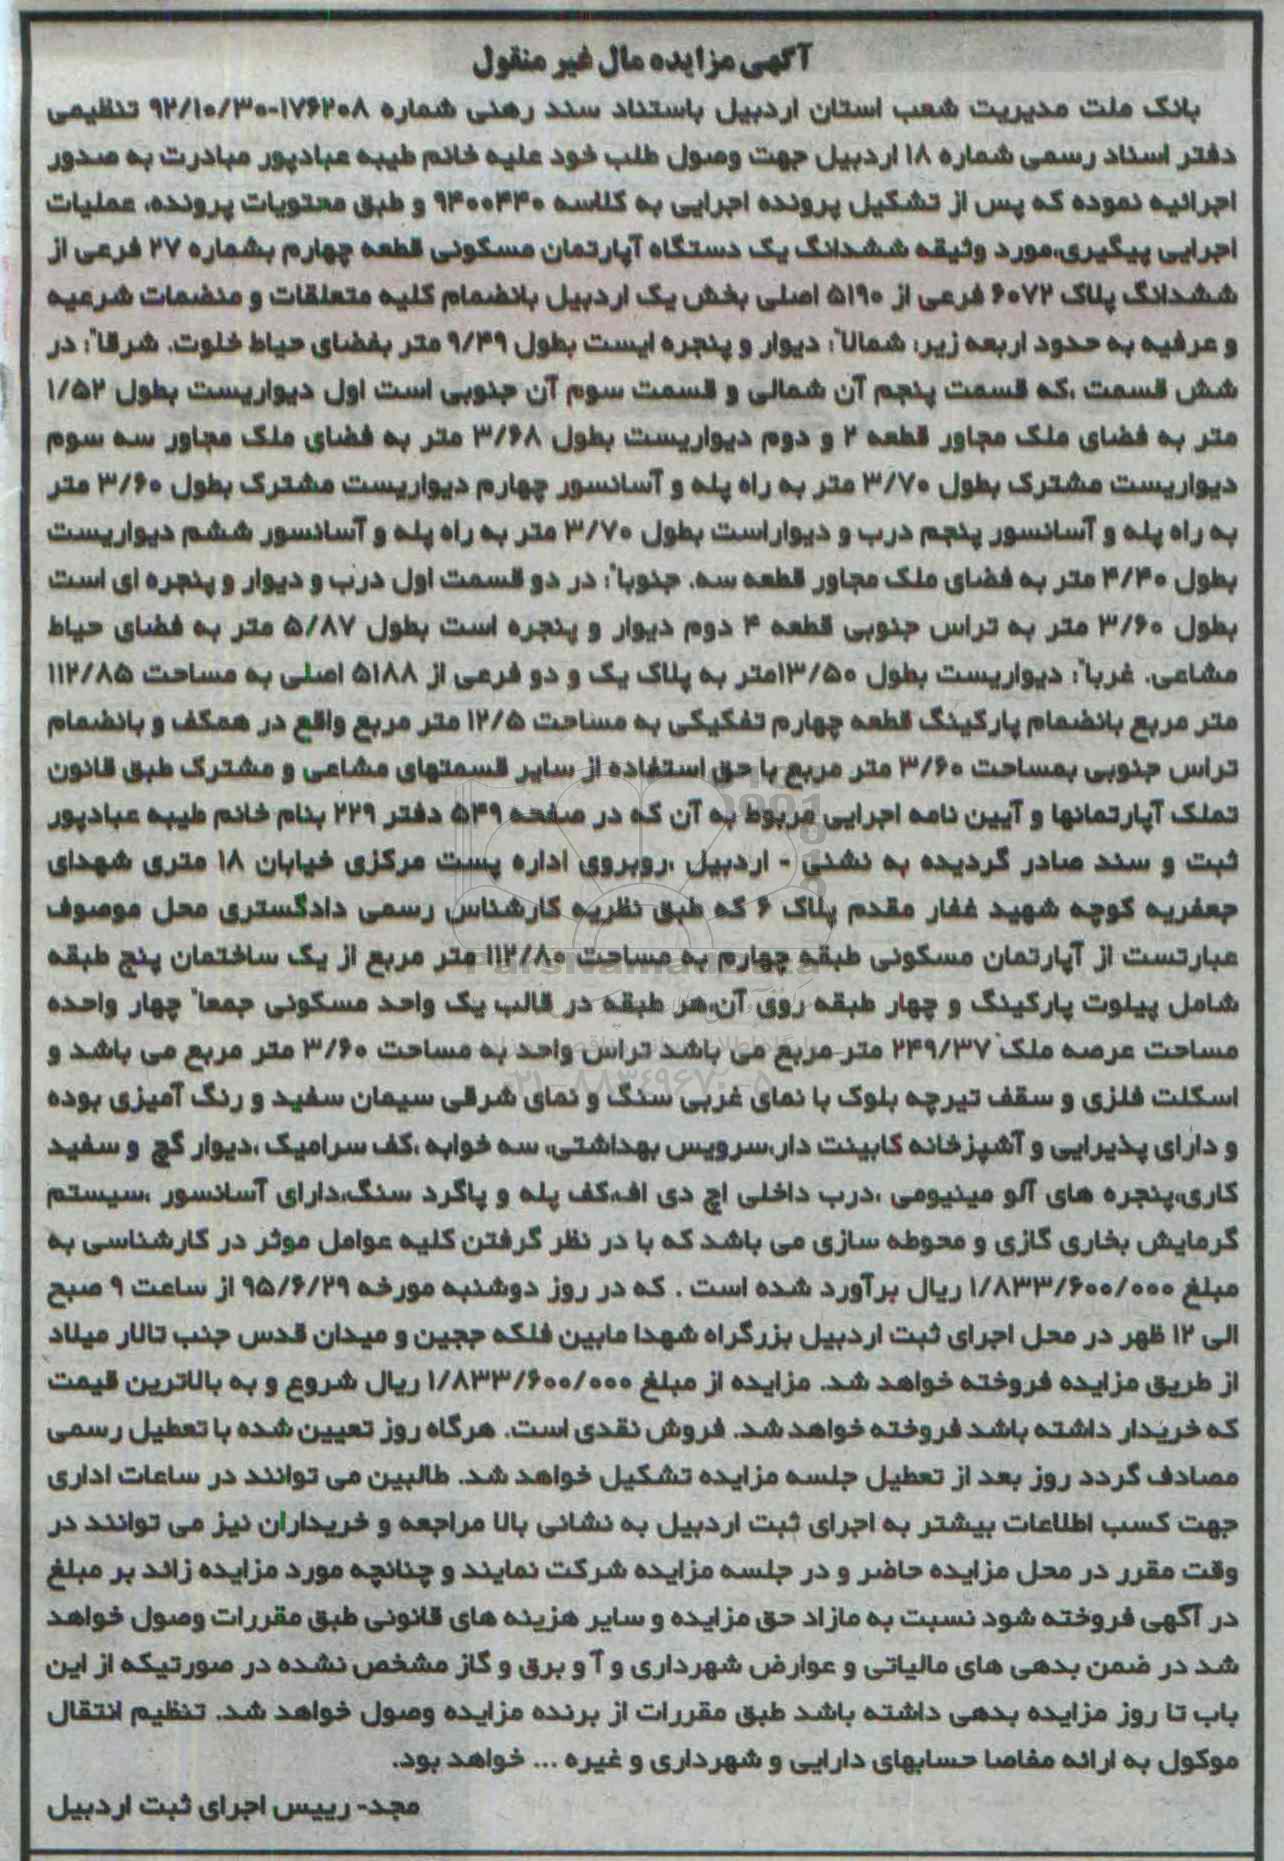 آگهی مزایده مال غیر منقول
بانک ملت مدیریت شعب استان اردبیل باستناد سند رهنی شماره ۱۷۶۲۰۸-۹۲/۱۰/۳۰ تنظیمی
دفتر اسناد رسمی شماره ۱۸ اردبیل جهت وصول طلب خود علیه خانم طیبه عبادپور مبادرت به صدور
اجرائیه نموده که پس از تشکیل پرونده اجرایی به کلاسه ۹۴۰۰۴۴۰ و طبق محتویات پرونده، عملیات
اجرایی پیگیری،مورد وثیقه ششدانگ یک دستگاه آپارتمان مسکونی قطعه چهارم بشماره ۲۷ فرعی از
ششدانگ پلاک ۶۰۷۲ فرعی از ۵۱۹۰ اصلی بخش یک اردبیل بانضمام کلیه متعلقات و منضمات شرعیه
و عرفیه به حدود اربعه زیر: شمالاً: دیوار و پنجره ایست بطول ۹/۴۹ متر بفضای حیاط خلوت. شرقاً: در
شش قسمت ،که قسمت پنجم آن شمالی و قسمت سوم آن جنوبی است اول دیواریست بطول ۱/۵۲
متر به فضای ملک مجاور قطعه ۲ و دوم دیواریست بطول ۳/۶۸ متر به فضای ملک مجاور سه سوم
دیواریست مشترک بطول ۳/۷۰ متر به راه پله و آسانسور چهارم دیواریست مشترک بطول ۳/۶۰ متر
به راه پله و آسانسور پنجم درب و دیواراست بطول ۳/۷۰ متر به راه پله و آسانسور ششم دیواریست
بطول ۴/۴۰ متر به فضای ملک مجاور قطعه سه. جنوباً: در دو قسمت اول درب و دیوار و پنجره ای است
بطول ۳/۶۰ متر به تراس جنوبی قطعه ۴ دوم دیوار و پنجره است بطول ۵/۸۷ متر به فضای حیاط
مشاعی. غرباً: دیواریست بطول ۱۳/۵۰متر به پلاک یک و دو فرعی از ۵۱۸۸ اصلی به مساحت ۱۱۲/۸۵
متر مربع بانضمام پارکینگ قطعه چهارم تفکیکی به مساحت ۱۲/۵ متر مربع واقع در همکف و بانضمام
تراس جنوبی بمساحت ۳/۶۰ متر مربع با حق استفاده از سایر قسمتهای مشاعی و مشترک طبق قانون
تملک آپارتمانها و آیین نامه اجرایی مربوط به آن که در صفحه ۵۴۹ دفتر ۲۲۹ بنام خانم طیبه عبادپور
ثبت و سند صادر گردیده به نشنی - اردبیل ،روبروی اداره پست مرکزی خیابان ۱۸ متری شهدای
جعفریه کوچه شهید غفار مقدم پلاک ۶ که طبق نظریه کارشناس رسمی دادگستری محل موصوف
عبارتست از آپارتمان مسکونی طبقه چهارم به مساحت ۱۱۲/۸۰ متر مربع از یک ساختمان پنج طبقه
شامل پیلوت پارکینگ و چهار طبقه روی آن،هر طبقه در قالب یک واحد مسکونی جمعاً چهار واحده
مساحت عرصه ملک ۲۴۹/۳۷ متر مربع می باشد تراس واحد به مساحت ۳/۶۰ متر مربع می باشد و
اسکلت فلزی و سقف تیرچه بلوک با نمای غربی سنگ و نمای شرقی سیمان سفید و رنگ آمیزی بوده
و دارای پذیرایی و آشپزخانه کابینت دار،سرویس بهداشتی، سه خوابه ،کف سرامیک ،دیوار گچ و سفید
کاری،پنجره های آلو مینیومی ،درب داخلی اچ دی اف،کف پله و پاگرد سنگ،دارای آسانسور ،سیستم
گرمایش بخاری گازی و محوطه سازی می باشد که با در نظر گرفتن کلیه عوامل موثر در کارشناسی به
مبلغ ۱/۸۳۳/۶۰۰/۰۰۰ ریال برآورد شده است . که در روز دوشنبه مورخه ۹۵/۶/۲۹ از ساعت ۹ صبح
الی ۱۲ ظهر در محل اجرای ثبت اردبیل بزرگراه شهدا مابین فلکه ججین و میدان قدس جنب تالار میلاد
از طریق مزایده فروخته خواهد شد. مزایده از مبلغ ۱/۸۳۳/۶۰۰/۰۰۰ ریال شروع و به بالاترین قیمت
که خریدار داشته باشد فروخته خواهد شد. فروش نقدی است. هرگاه روز تعیین شده با تعطیل رسمی
مصادف گردد روز بعد از تعطیل جلسه مزایده تشکیل خواهد شد. طالبین می توانند در ساعات اداری
جهت کسب اطلاعات بیشتر به اجرای ثبت اردبیل به نشانی بالا مراجعه و خریداران نیز می توانند در
وقت مقرر در محل مزایده حاضر و در جلسه مزایده شرکت نمایند و چنانچه مورد مزایده زائد بر مبلغ
در آگهی فروخته شود نسبت به مازاد حق مزایده و سایر هزینه های قانونی طبق مقررات وصول خواهد
شد در ضمن بدهی های مالیاتی و عوارض شهرداری و آ و برق و گاز مشخص نشده در صورتیکه از این
باب تا روز مزایده بدهی داشته باشد طبق مقررات از برنده مزایده وصول خواهد شد. تنظیم انتقال
موکول به ارائه مفاصا حسابهای دارایی و شهرداری و غیره ... خواهد بود.
مجد- رییس اجرای ثبت اردبیل